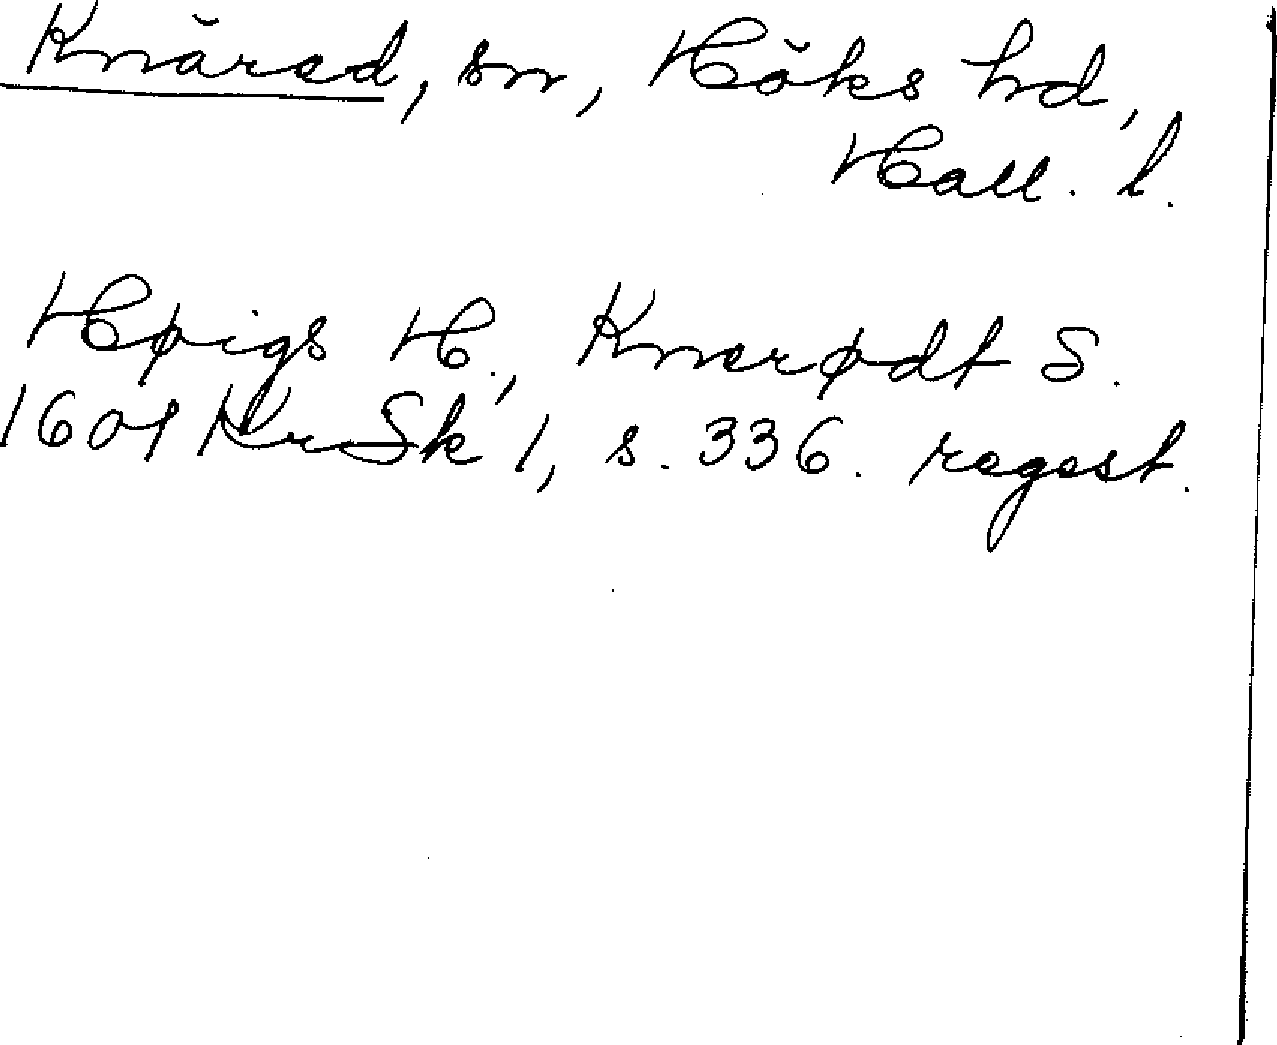 Knäred, sn, Höks hd,
Hall. l.
Høigs H., Knerødt S.
1601 KrSk 1, s. 336. regest.